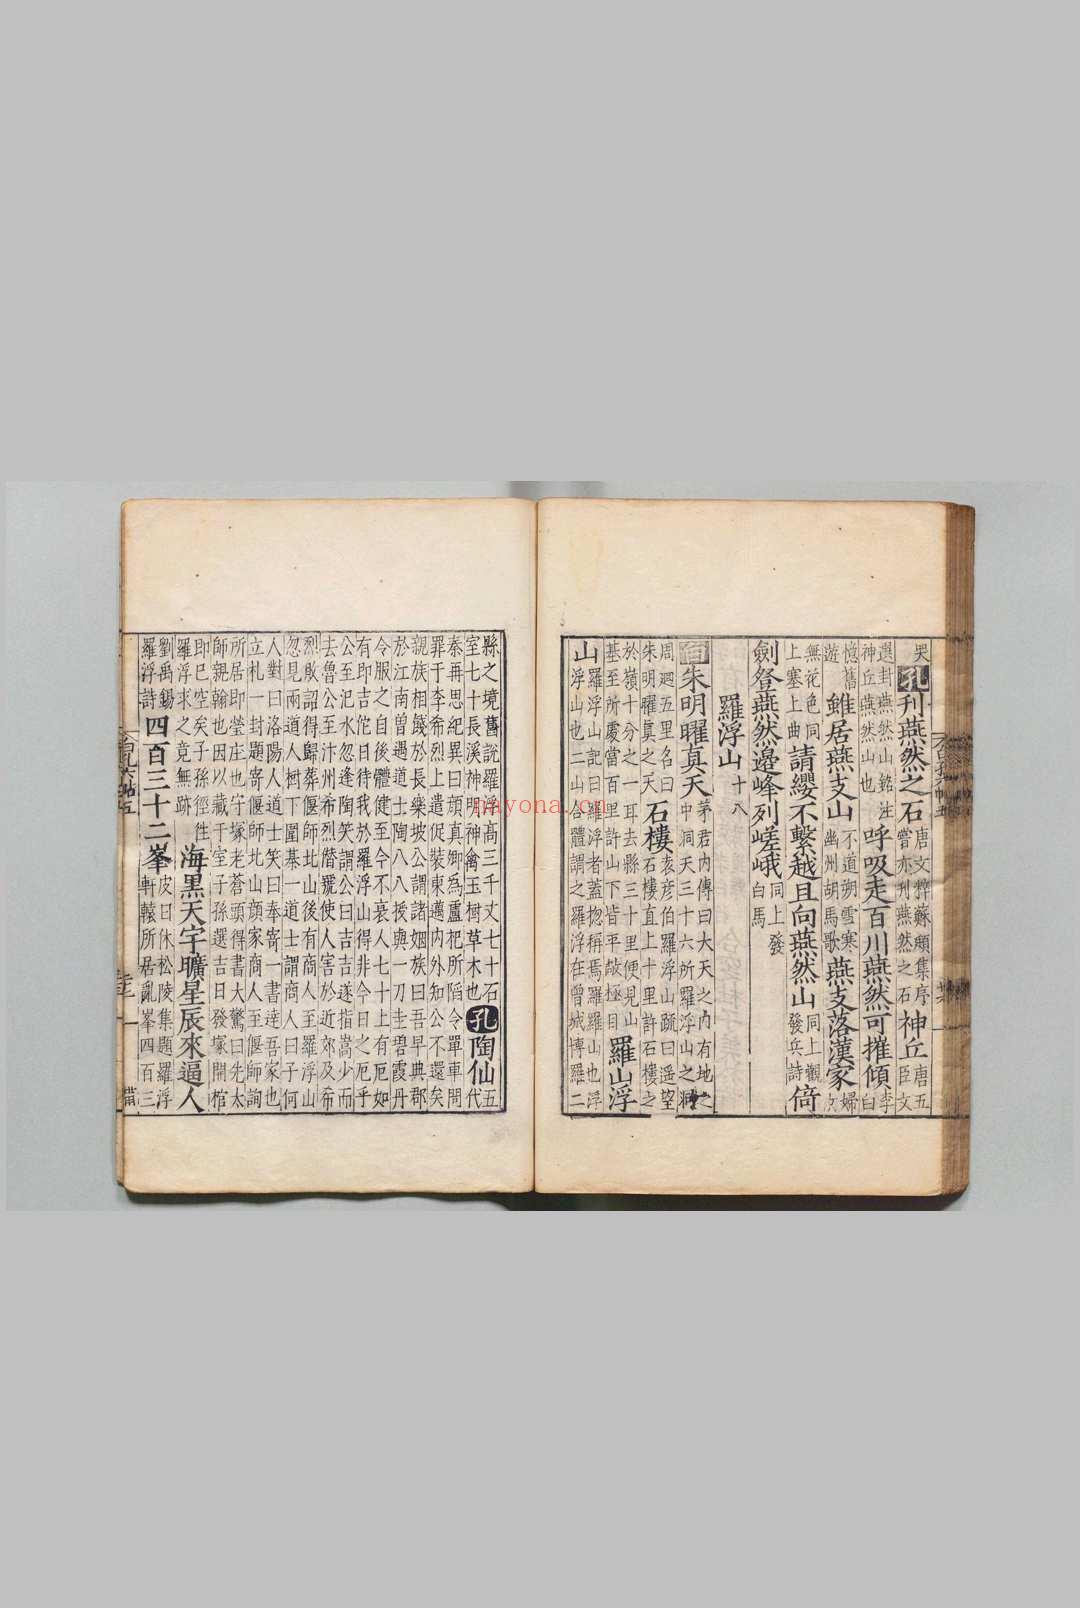 哭
孔刊燕然之石
唐文粹蘇頲集序
嘗亦刊燕然之石
神丘
唐五
臣文
選封燕然山銘注
神丘燕然山也
呼吸走百川燕然可摧傾
李白
憶舊
遊
雖居燕支山
不道朔雪寒
幽州胡馬歌
燕支落漢家
婦
女
無花色同
上塞上曲
請纓不繫越且向燕然山
同上觀
發兵詩
倚
劍登燕然邊峰列嵯峨
同上發
白馬
羅浮山
十八
白朱明曜真天
茅君內傳曰大天之內有地之
中洞天三十六所羅浮山之洞
周迴五里名曰
朱明曜真之天
石樓
袁彥伯羅浮山疏曰遥望
石樓直上十里許石樓之
於嶺十分之一耳去縣三十里便見山
基至所處當百里許山下皆平敞極目
羅山浮
山
羅浮山記曰羅浮者蓋揔稱焉羅羅山也浮
浮山也二山合體謂之羅浮在曾城博羅二
縣之境舊說羅浮高三千丈七十石
室七十長溪神明神禽玉樹草木也
孔陶仙
五
代
秦再思紀異曰顔真卿為盧杞所陷令單車問
罪于李希烈上遣促裝東邁內外知公不還矣
親族相餞於長樂坡公謂諸姻族曰吾早典郡
於江南曾遇道士陶八八授與一刀圭碧霞丹
令服之自後體健至今不衰人七十上有厄如
有即吉佗日待我於羅浮山得非今日之厄乎
公至汜水忽逢陶笑謂公曰吉吉遂指嵩少而
去魯公至汴州希烈僭號使人害於近郊及希
烈敗詔得歸葬偃師北山後有商人至羅浮山
忽見兩道人樹下圍碁一道士謂商人曰子何
人對曰洛陽人道士笑曰奉寄一書達吾家也
立札一封題寄偃師北山顔家商人至偃師詢
所居即塋庄也守塚老蒼頭得書大驚曰先太
師親翰也因以藏于室子孫選吉日發塚開棺
即已空矣子孫徑徃
羅浮求之竟無跡
海黑天宇曠星辰來逼人
劉禹錫
羅浮詩
四百三十二峯
皮日休松陵集題羅浮
軒轅所居亂峯四百三
nayona.cn